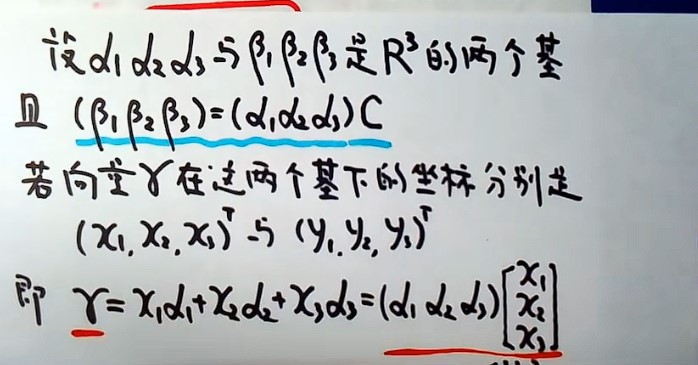 设α₁ α₂ α₃与β₁ β₂ β₃是R³的两个基
且 (β₁ β₂ β₃)=(α₁ α₂ α₃)C
若向量γ在这两个基下的坐标分别是
(x₁, x₂, x₃)ᵀ与 (y₁, y₂, y₃)ᵀ
即 γ=x₁α₁+x₂α₂+x₃α₃=(α₁ α₂ α₃)[x₁ x₂ x₃]